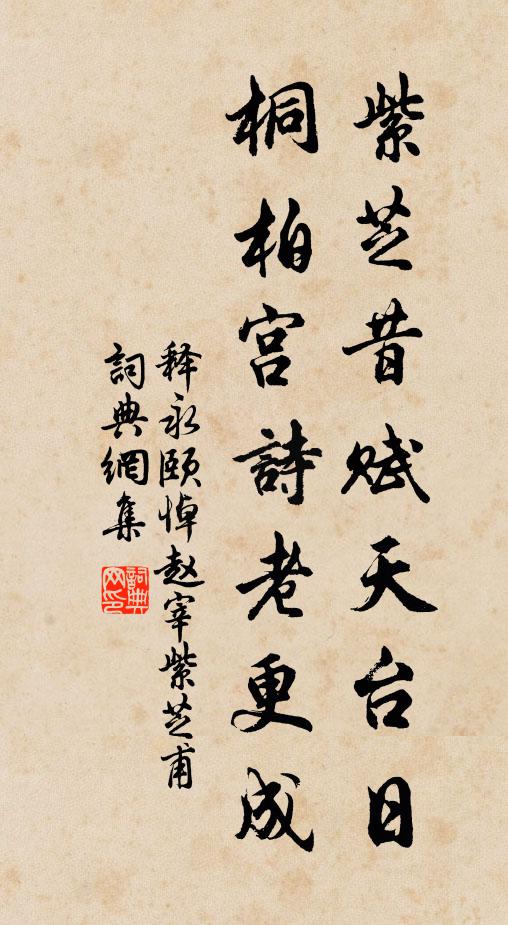 紫芝昔赋天台日
桐柏宫詩老更成
释永颐悼赵宰紫芝甫
詞典網集
詞典
网印